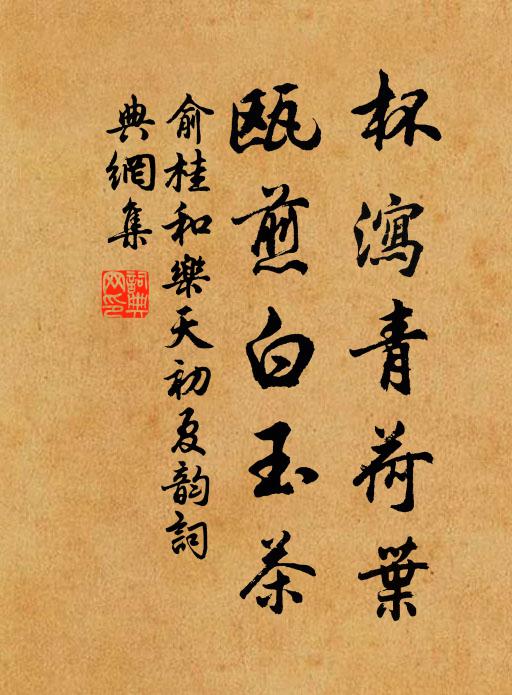 杯瀉青荷葉
甌煎白玉茶
俞桂和樂天初夏韵詞
典網集
詞典
网印